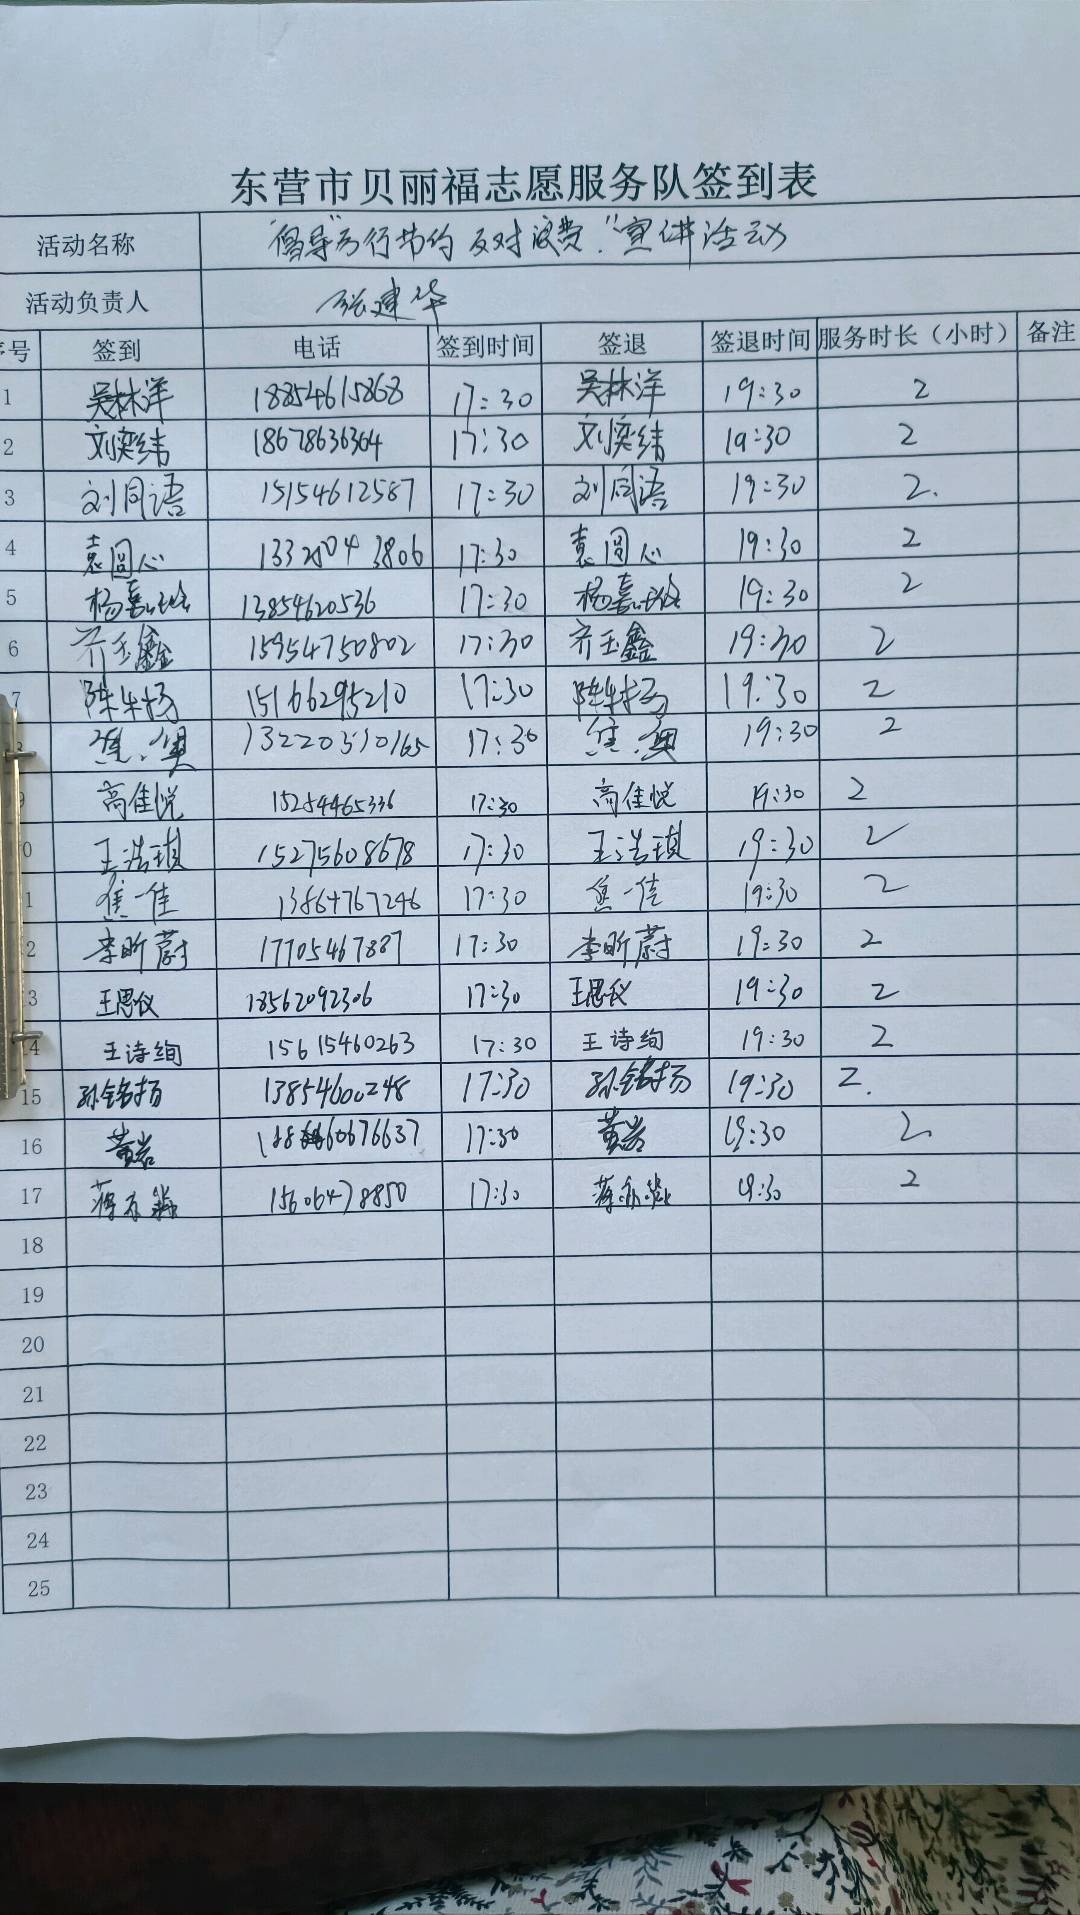 东营市贝丽福志愿服务队签到表
活动名称 "倡导"厉行节约 反对浪费."宣讲活动
活动负责人 张建华
序号 签到 电话 签到时间 签退 签退时间 服务时长（小时） 备注
1 吴林洋 18854615868 17:30 吴林洋 19:30 2
2 刘奕纬 18678636364 17:30 刘奕纬 19:30 2
3 刘同语 15154612587 17:30 刘同语 19:30 2.
4 袁圆心 1332043806 17:30 袁圆心 19:30 2
5 杨嘉璐 13854620536 17:30 杨嘉璐 19:30 2
6 齐玉鑫 15954750802 17:30 齐玉鑫 19:30 2
7 陈牧扬 15166295210 17:30 陈牧扬 19:30 2
焦 奥 13220510165 17:30 焦 奥 19:30 2
9 高佳悦 15254465336 17:30 高佳悦 19:30 2
0 王浩琪 15275608678 17:30 王浩琪 19:30 2
1 焦一佳 13864767246 17:30 焦一佳 19:30 2
2 李昕蔚 17705467887 17:30 李昕蔚 19:30 2
3 王思仪 18562092306 17:30 王思仪 19:30 2
14 王诗绚 15615460263 17:30 王诗绚 19:30 2
15 孙铭扬 13854600248 17:30 孙铭扬 19:30 2.
16 黄岩 17:30 黄岩 19:30 2
17 15606478850 17:30 19:30 2
18
19
20
21
22
23
24
25